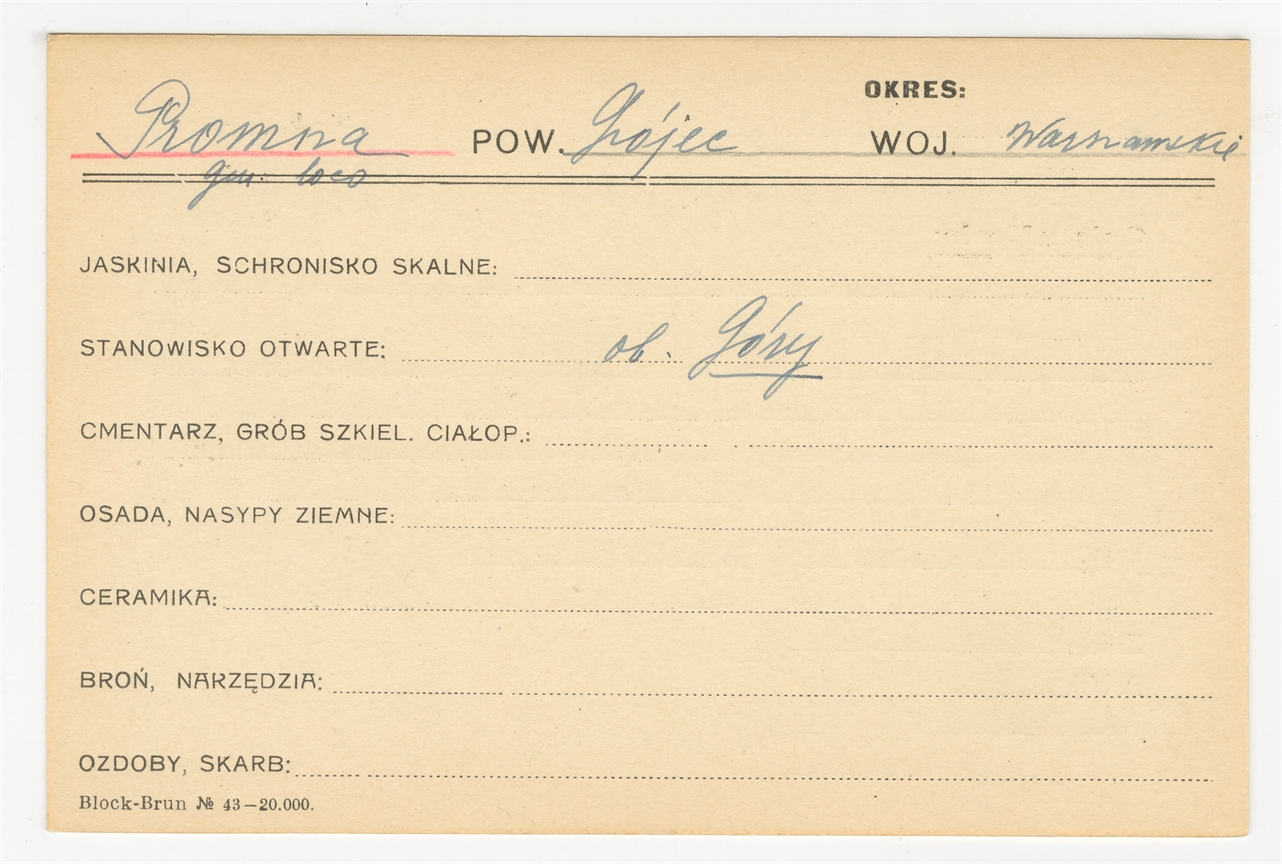 OKRES:
Promna POW. Grójec WOJ. Warszawskie
gm. loco
JASKINIA, SCHRONISKO SKALNE:
STANOWISKO OTWARTE: ob. Góry
CMENTARZ, GRÓB SZKIEL. CIAŁOP.:
OSADA, NASYPY ZIEMNE:
CERAMIKA:
BROŃ, NARZĘDZIA:
OZDOBY, SKARB:
Block-Brun № 43—20.000.